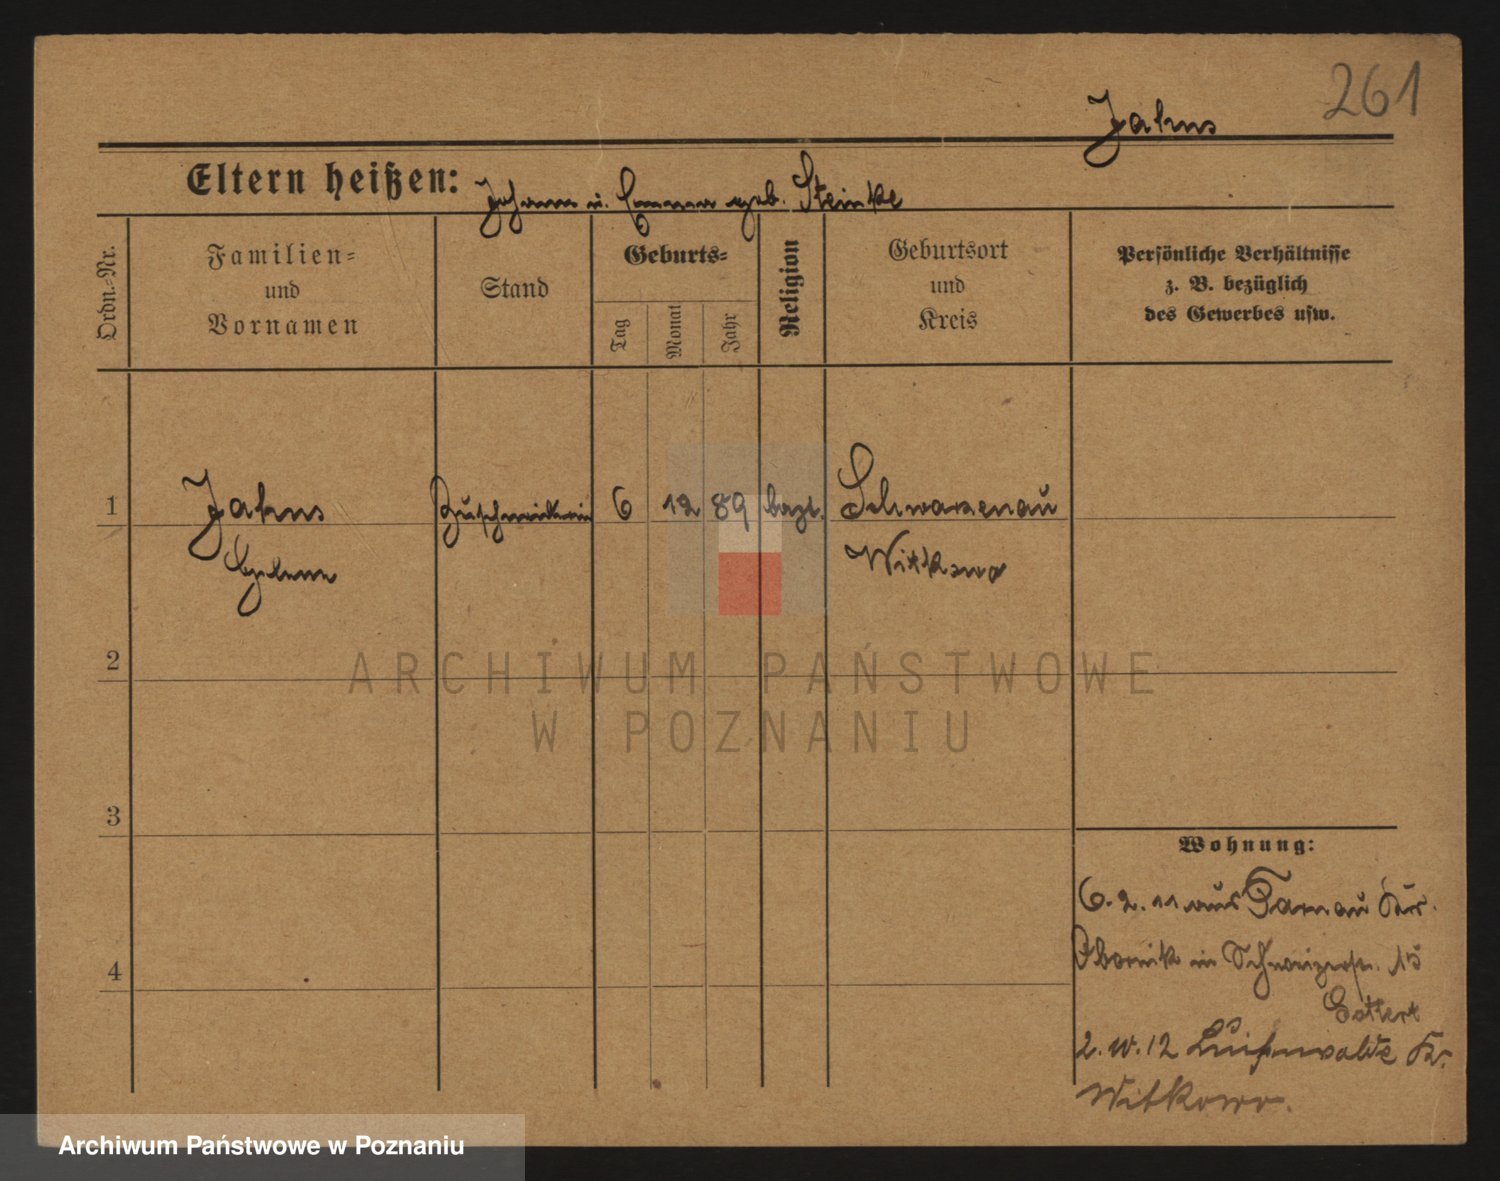 261
Jahns
Eltern heißen: Johann u. Emma geb. Steinke
Ordn.-Nr.
Familien-
und
Vornamen
Stand
Geburts-
Tag
Monat
Jahr
Religion
Geburtsort
und
Kreis
Persönliche Verhältnisse
z. B. bezüglich
des Gewerbes usw.
1
Jahns
6 12 89
Schwarzenau
Witkowo
2
3
4
Wohnung:
6. 2. 11 aus Tarnau Kr.
Obornik in Schweizerstr. 15
2. IV. 12 Luisenwalde Kr.
Witkowo.
ARCHIWUM PAŃSTWOWE
W POZNANIU
Archiwum Państwowe w Poznaniu